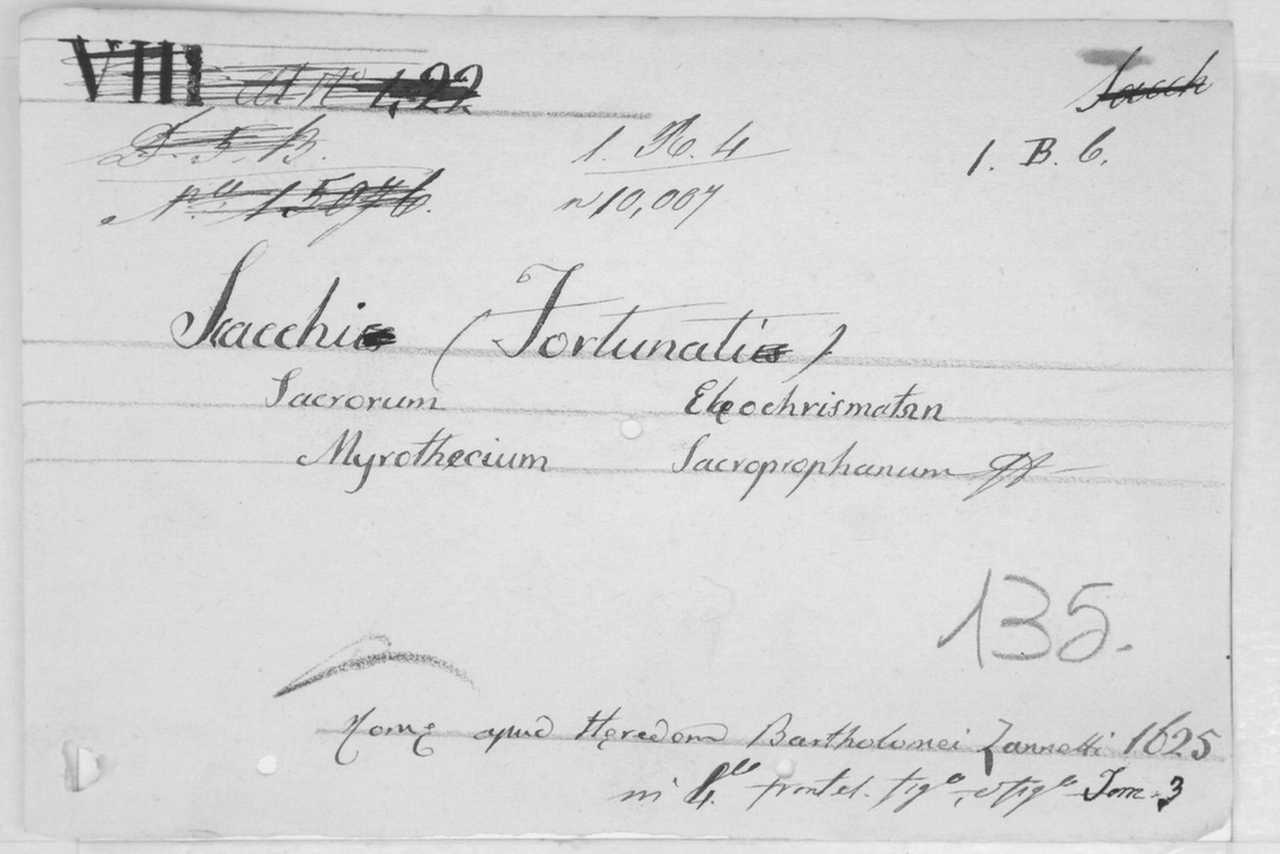 VIII M Nº 1,22.
Sacch
D. 5. B.
1. H. 4
1. B. 6.
Nº 15076.
n 10,007
Sacchi (Fortunati)
Sacrorum Eleochrismaton
Myrothecium Sacroprophanum
135.
Rome apud Heredem Bartholomei Zannetti 1625
in 4to frontel. figº, et figº Tom. 3